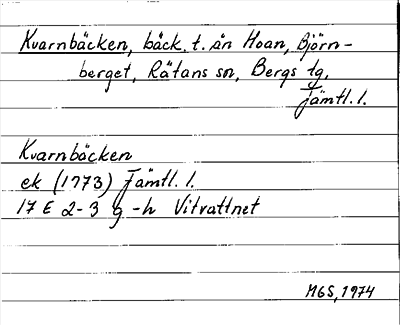 Kvarnbäcken, bäck. t. ån Hoan, Björn-
berget, Rätans sn, Bergs tg,
Jämtl. l.
Kvarnbäcken
ek (1773) Jämtl. l.
17 E 2-3 g-h Vitvattnet
MGS, 1974